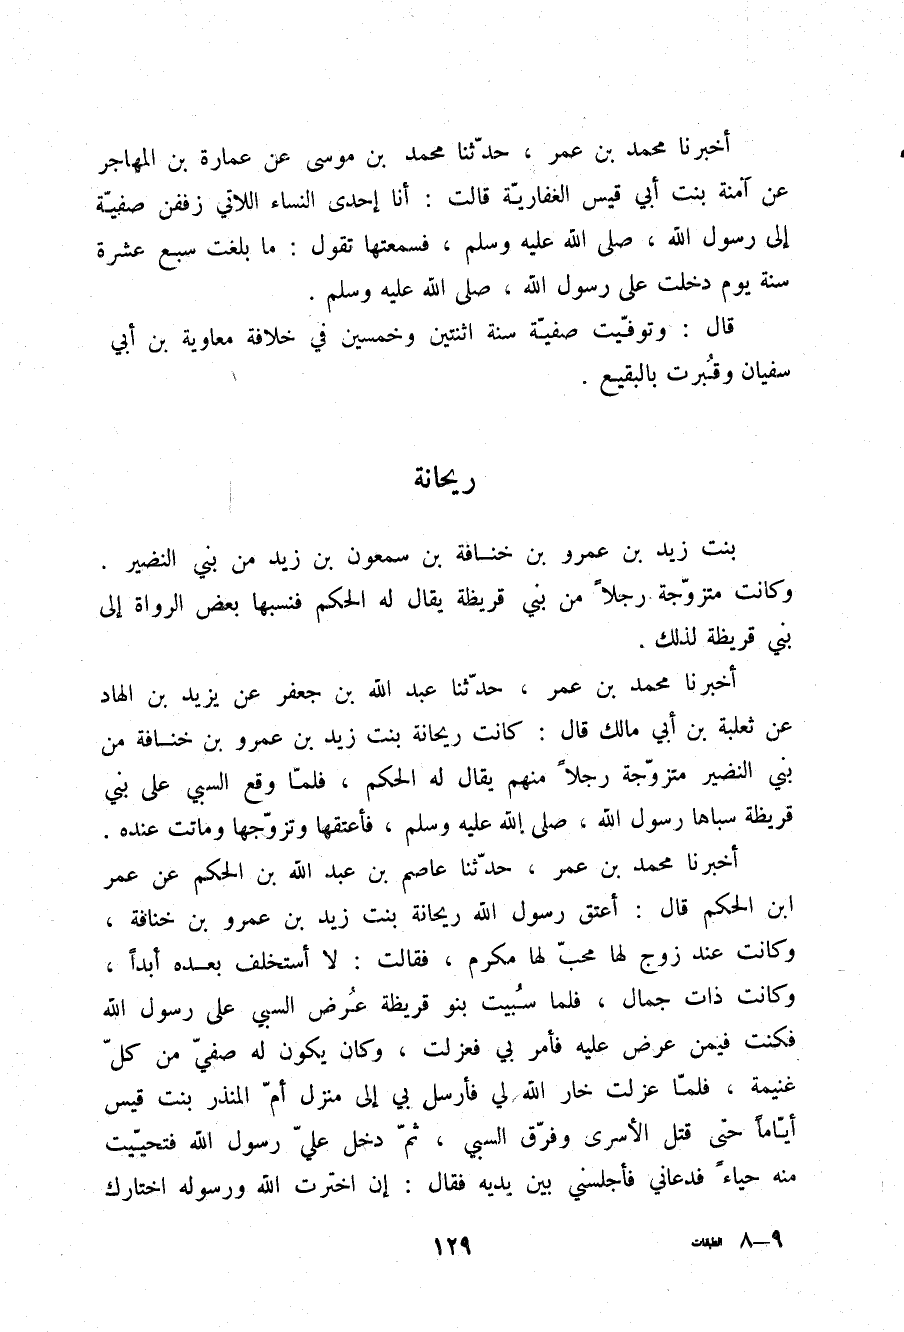 أخبرنا محمد بن عمر ، حدّثنا محمد بن موسى عن عمارة بن المهاجر
عن آمنة بنت أبي قيس الغفاريّة قالت : أنا إحدى النساء اللاتي زففن صفيّة
إلى رسول الله ، صلى الله عليه وسلم ، فسمعتها تقول : ما بلغت سبع عشرة
سنة يوم دخلت على رسول الله ، صلى الله عليه وسلم .
قال : وتوفّيت صفيّة سنة اثنتين وخمسين في خلافة معاوية بن أبي
سفيان وقُبرت بالبقيع .
ريحانة
بنت زيد بن عمرو بن خنافة بن سمعون بن زيد من بني النضير .
وكانت متزوّجة رجلاً من بني قريظة يقال له الحكم فنسبها بعض الرواة إلى
بني قريظة لذلك .
أخبرنا محمد بن عمر ، حدّثنا عبد الله بن جعفر عن يزيد بن الهاد
عن ثعلبة بن أبي مالك قال : كانت ريحانة بنت زيد بن عمرو بن خنافة من
بني النضير متزوّجة رجلاً منهم يقال له الحكم ، فلمّا وقع السبي على بني
قريظة سباها رسول الله ، صلى الله عليه وسلم ، فأعتقها وتزوّجها وماتت عنده .
أخبرنا محمد بن عمر ، حدّثنا عاصم بن عبد الله بن الحكم عن عمر
ابن الحكم قال : أعتق رسول الله ريحانة بنت زيد بن عمرو بن خنافة ،
وكانت عند زوج لها محبّ لها مكرم ، فقالت : لا أستخلف بعده أبداً ،
وكانت ذات جمال ، فلما سُبيت بنو قريظة عُرض السبي على رسول الله
فكنت فيمن عرض عليه فأمر بي فعزلت ، وكان يكون له صفيّ من كلّ
غنيمة ، فلمّا عزلت خار الله لي فأرسل بي إلى منزل أمّ المنذر بنت قيس
أيّاماً حتّى قتل الأسرى وفرّق السبي ، ثمّ دخل عليّ رسول الله فتحيّيت
منه حياءً فدعاني فأجلسني بين يديه فقال : إن اخترت الله ورسوله اختارك
٩—٨ الطبقات
١٢٩